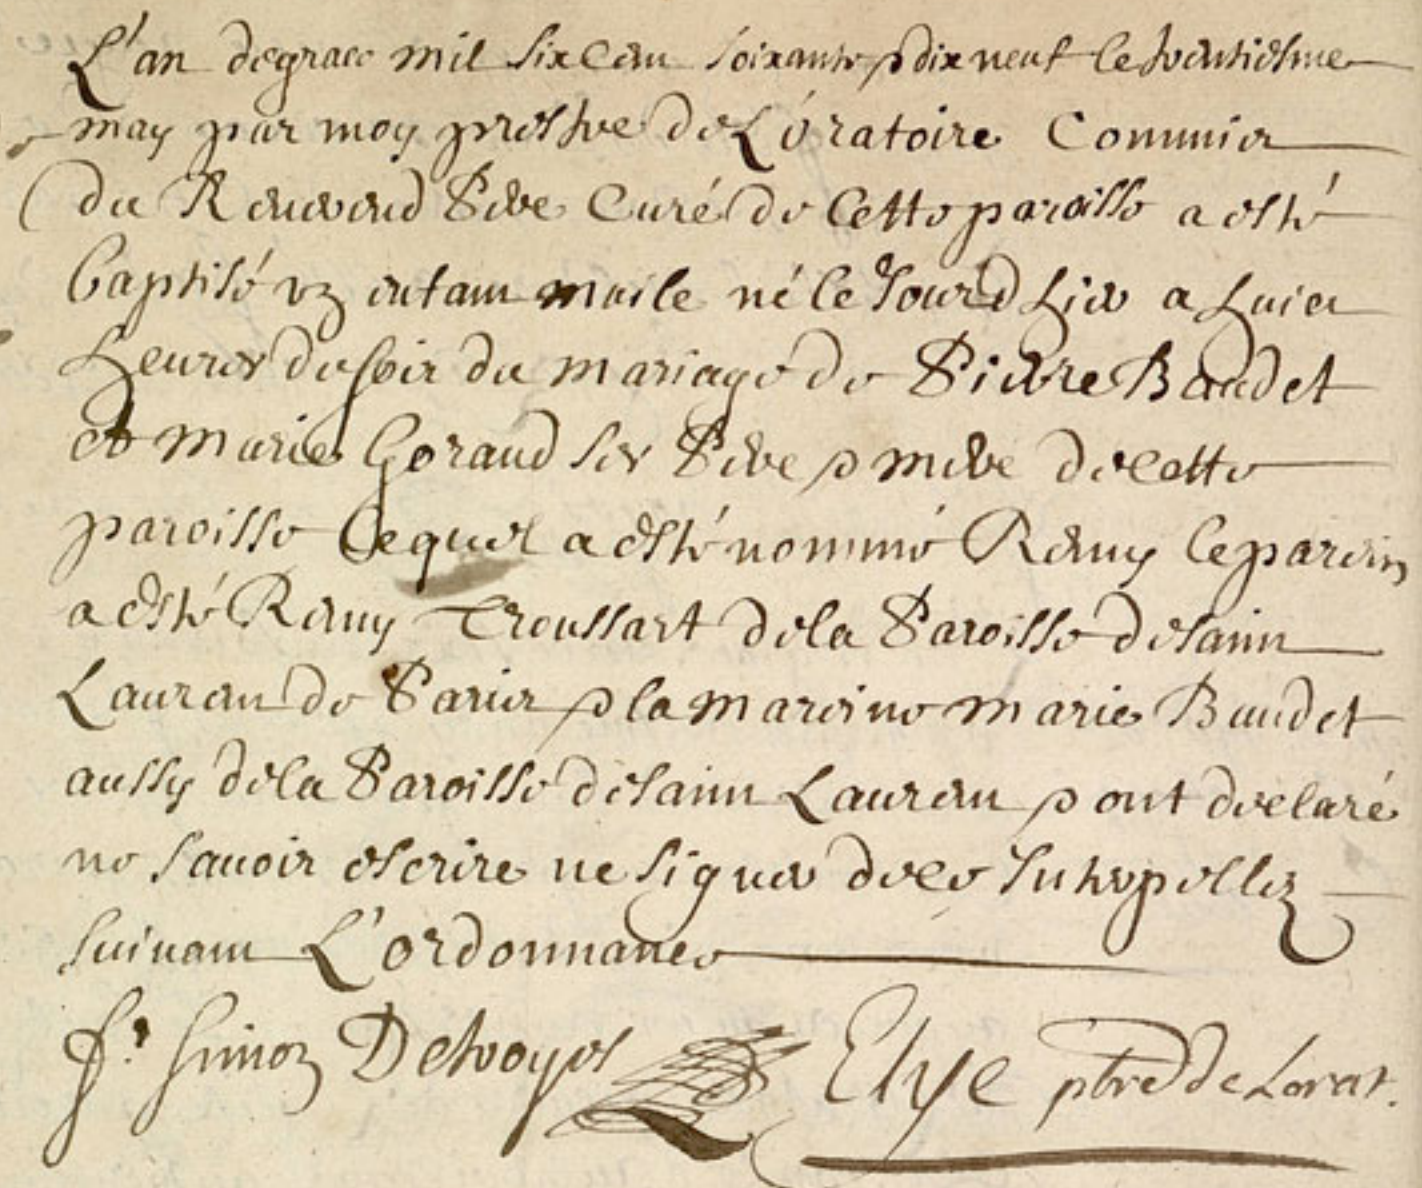 L'an de grace mil six cen soixante & dix neuf le trentiesme
may par moy prestre de L'oratoire Commis
du Reuerend Pere Curé de Cette paroisse a esté
baptisé vn enfant masle né le Jour d hier a huict
heures du soir du mariage de Pierre Baudet
et Marie Goraud ses Pere & mere de cette
paroisse lequel a esté nommé Remy le parein
a esté Remy Troussart de la Paroisse de sainct
Lauren de Paris & la mareine marie Baudet
aussy de la Paroisse de sainct Lauren & ont declaré
ne sauoir escrire ne signer de ce Interpellez
suiuant L'ordonnance
fr. Simon Detroyes Elye pbre de Lorat.